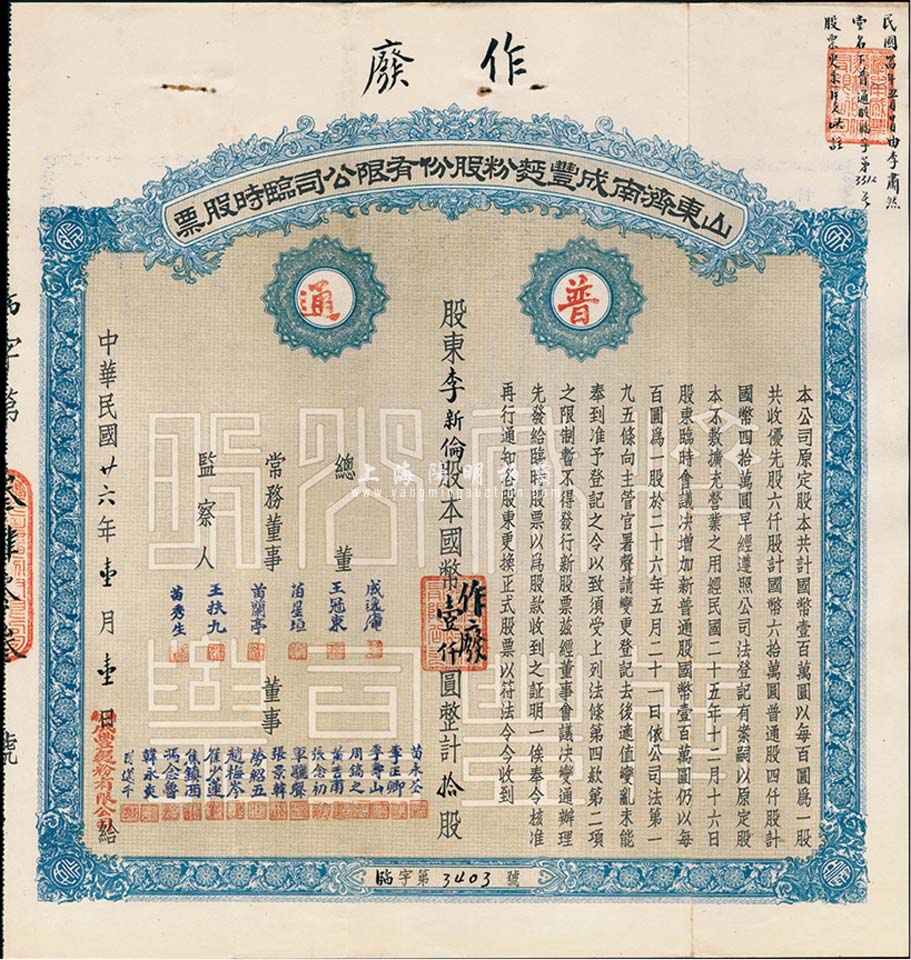 作廢
由李肅然
堂名下普通股
山東濟南成豐麵粉股份有限公司臨時股票
普通
本公司原定股本共計國幣壹百萬圓以每百圓爲一股
共收優先股六仟股計國幣六拾萬圓普通股四仟股計
國幣四拾萬圓早經遵照公司法登記有案嗣以原定股
本不敷擴充營業之用經民國二十五年十二月十六日
股東臨時會議決增加新普通股國幣壹百萬圓仍以每
百圓爲一股於二十六年五月二十一日依公司法第一
九五條向主管官署聲請變更登記去後適值變亂未能
奉到准予登記之令以致須受上列法條第四款第二項
之限制暫不得發行新股票茲經董事會議決變通辦理
先發給臨時股票以爲股款收到之証明一俟奉令核准
再行通知各股東更換正式股票以符法令今收到
股東李新倫股本國幣壹仟圓整計拾股
作廢
總董
成逸庵
王冠東
常務董事
苗星垣
苗蘭亭
監察人
王扶九
苗秀生
董事
李正卿
李尊山
周鎬之
張念初
軍驥磐
張景韓
勞紹五
趙梅岑
崔少蓮
焦鎮西
馮念魯
韓永爽
中華民國廿六年壹月壹日
成豐麵粉有限公司給
臨字第3403號
字第
號
上海陽明拍賣
www.yangmingauction.com